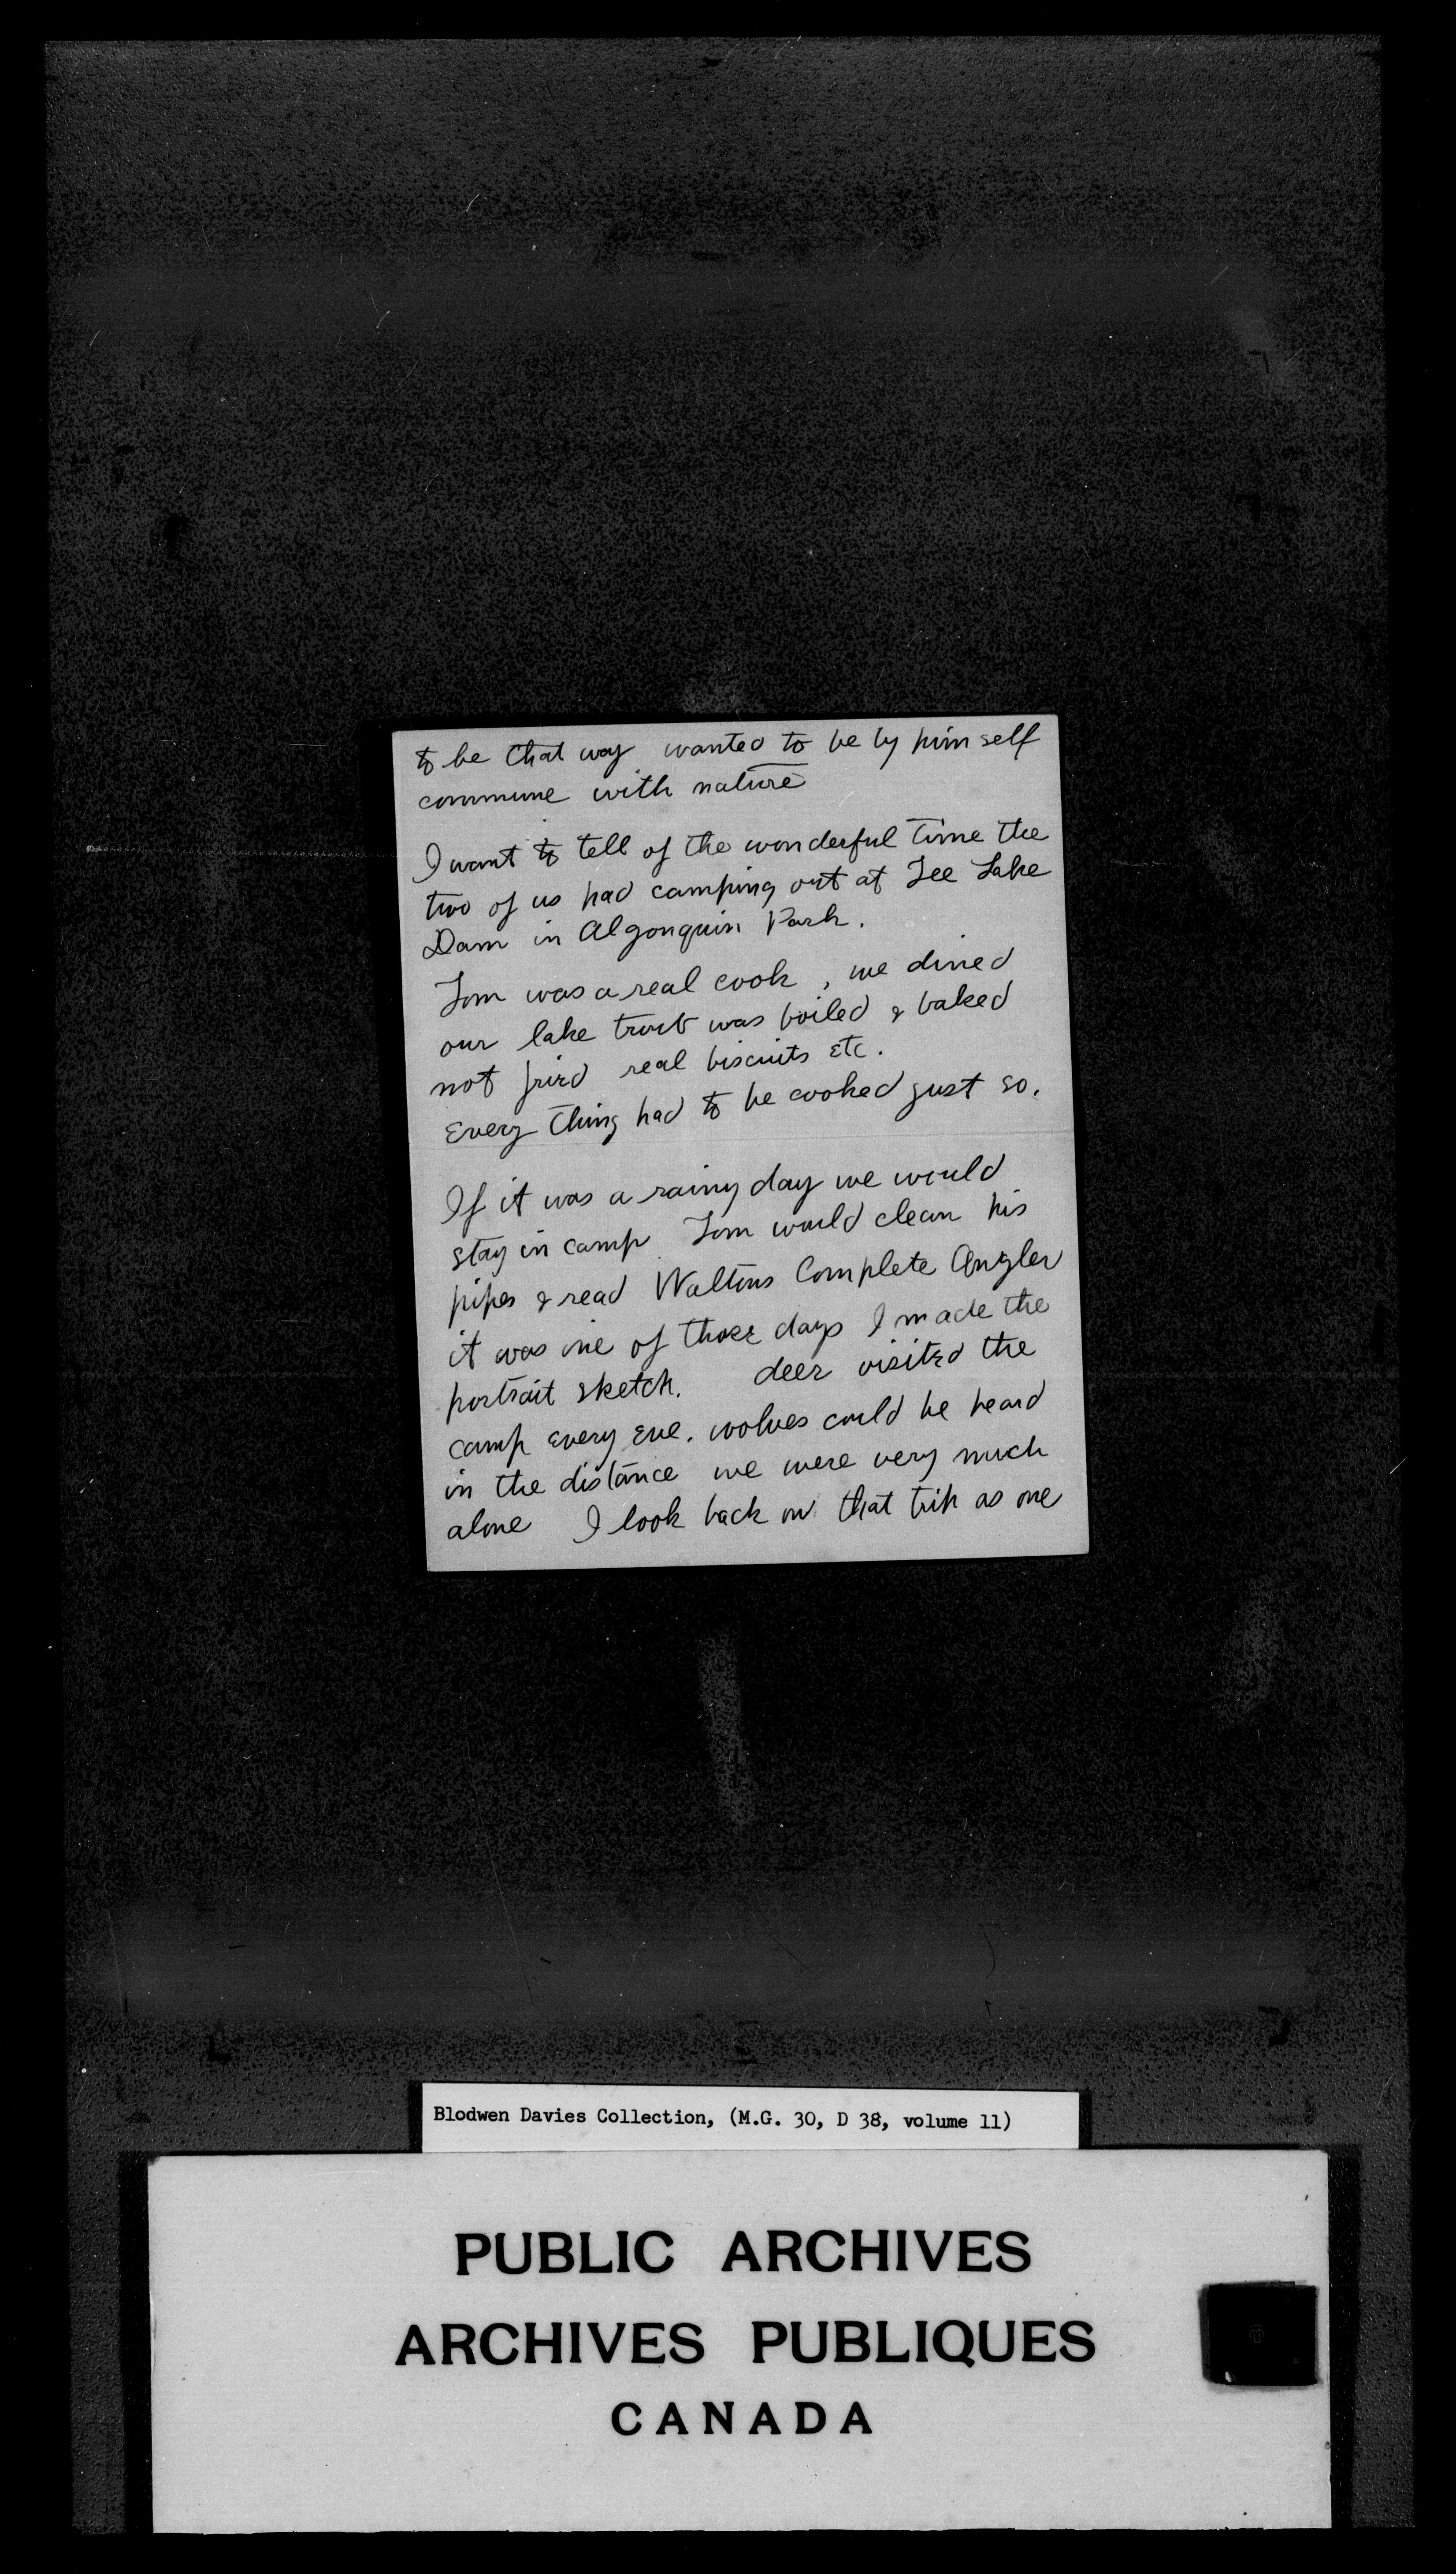 to be that way wanted to be by him self
commune with nature
I want to tell of the wonderful time the
two of us had camping out at Tee Lake
Dam in Algonquin Park.
Tom was a real cook, we dined
our lake trout was boiled & baked
not fried real biscuits etc.
every thing had to be cooked just so.
If it was a rainy day we would
stay in camp Tom would clean his
pipes & read Waltons Complete Angler
it was one of those days I made the
portrait sketch. deer visited the
camp every eve. wolves could be heard
in the distance we were very much
alone I look back on that trip as one
Blodwen Davies Collection, (M.G. 30, D 38, volume 11)
PUBLIC ARCHIVES
ARCHIVES PUBLIQUES
CANADA